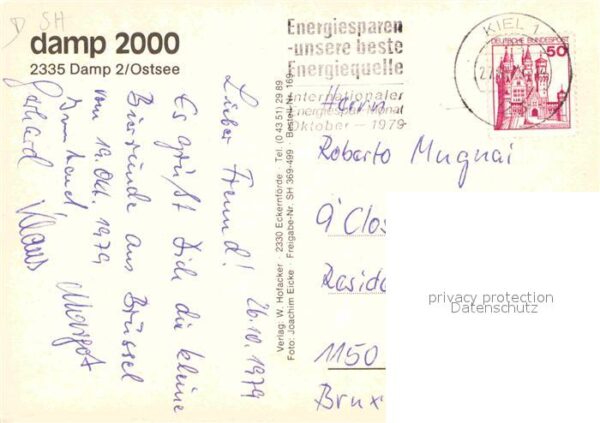 D SH
damp 2000
2335 Damp 2/Ostsee
26.10.1979
Lieber Freund!
Es grüßt Dich die kleine
Bierrunde aus Brüssel
vom 19. Okt. 1979
Gerhard
Klaus
Margot
Verlag: W. Hofacker 2330 Eckernförde Tel. (0 43 51) 29 89
Foto: Joachim Eicke · Freigabe-Nr. SH 369-499 Bestell-Nr. 169
Energiesparen
-unsere beste
Energiequelle
Internationaler
Energiespar-Monat
Oktober – 1979
KIEL 1
DEUTSCHE BUNDESPOST
50
Herrn
Roberto Mugnai
9 Clos
Reside
1150
Brux
privacy protection
Datenschutz